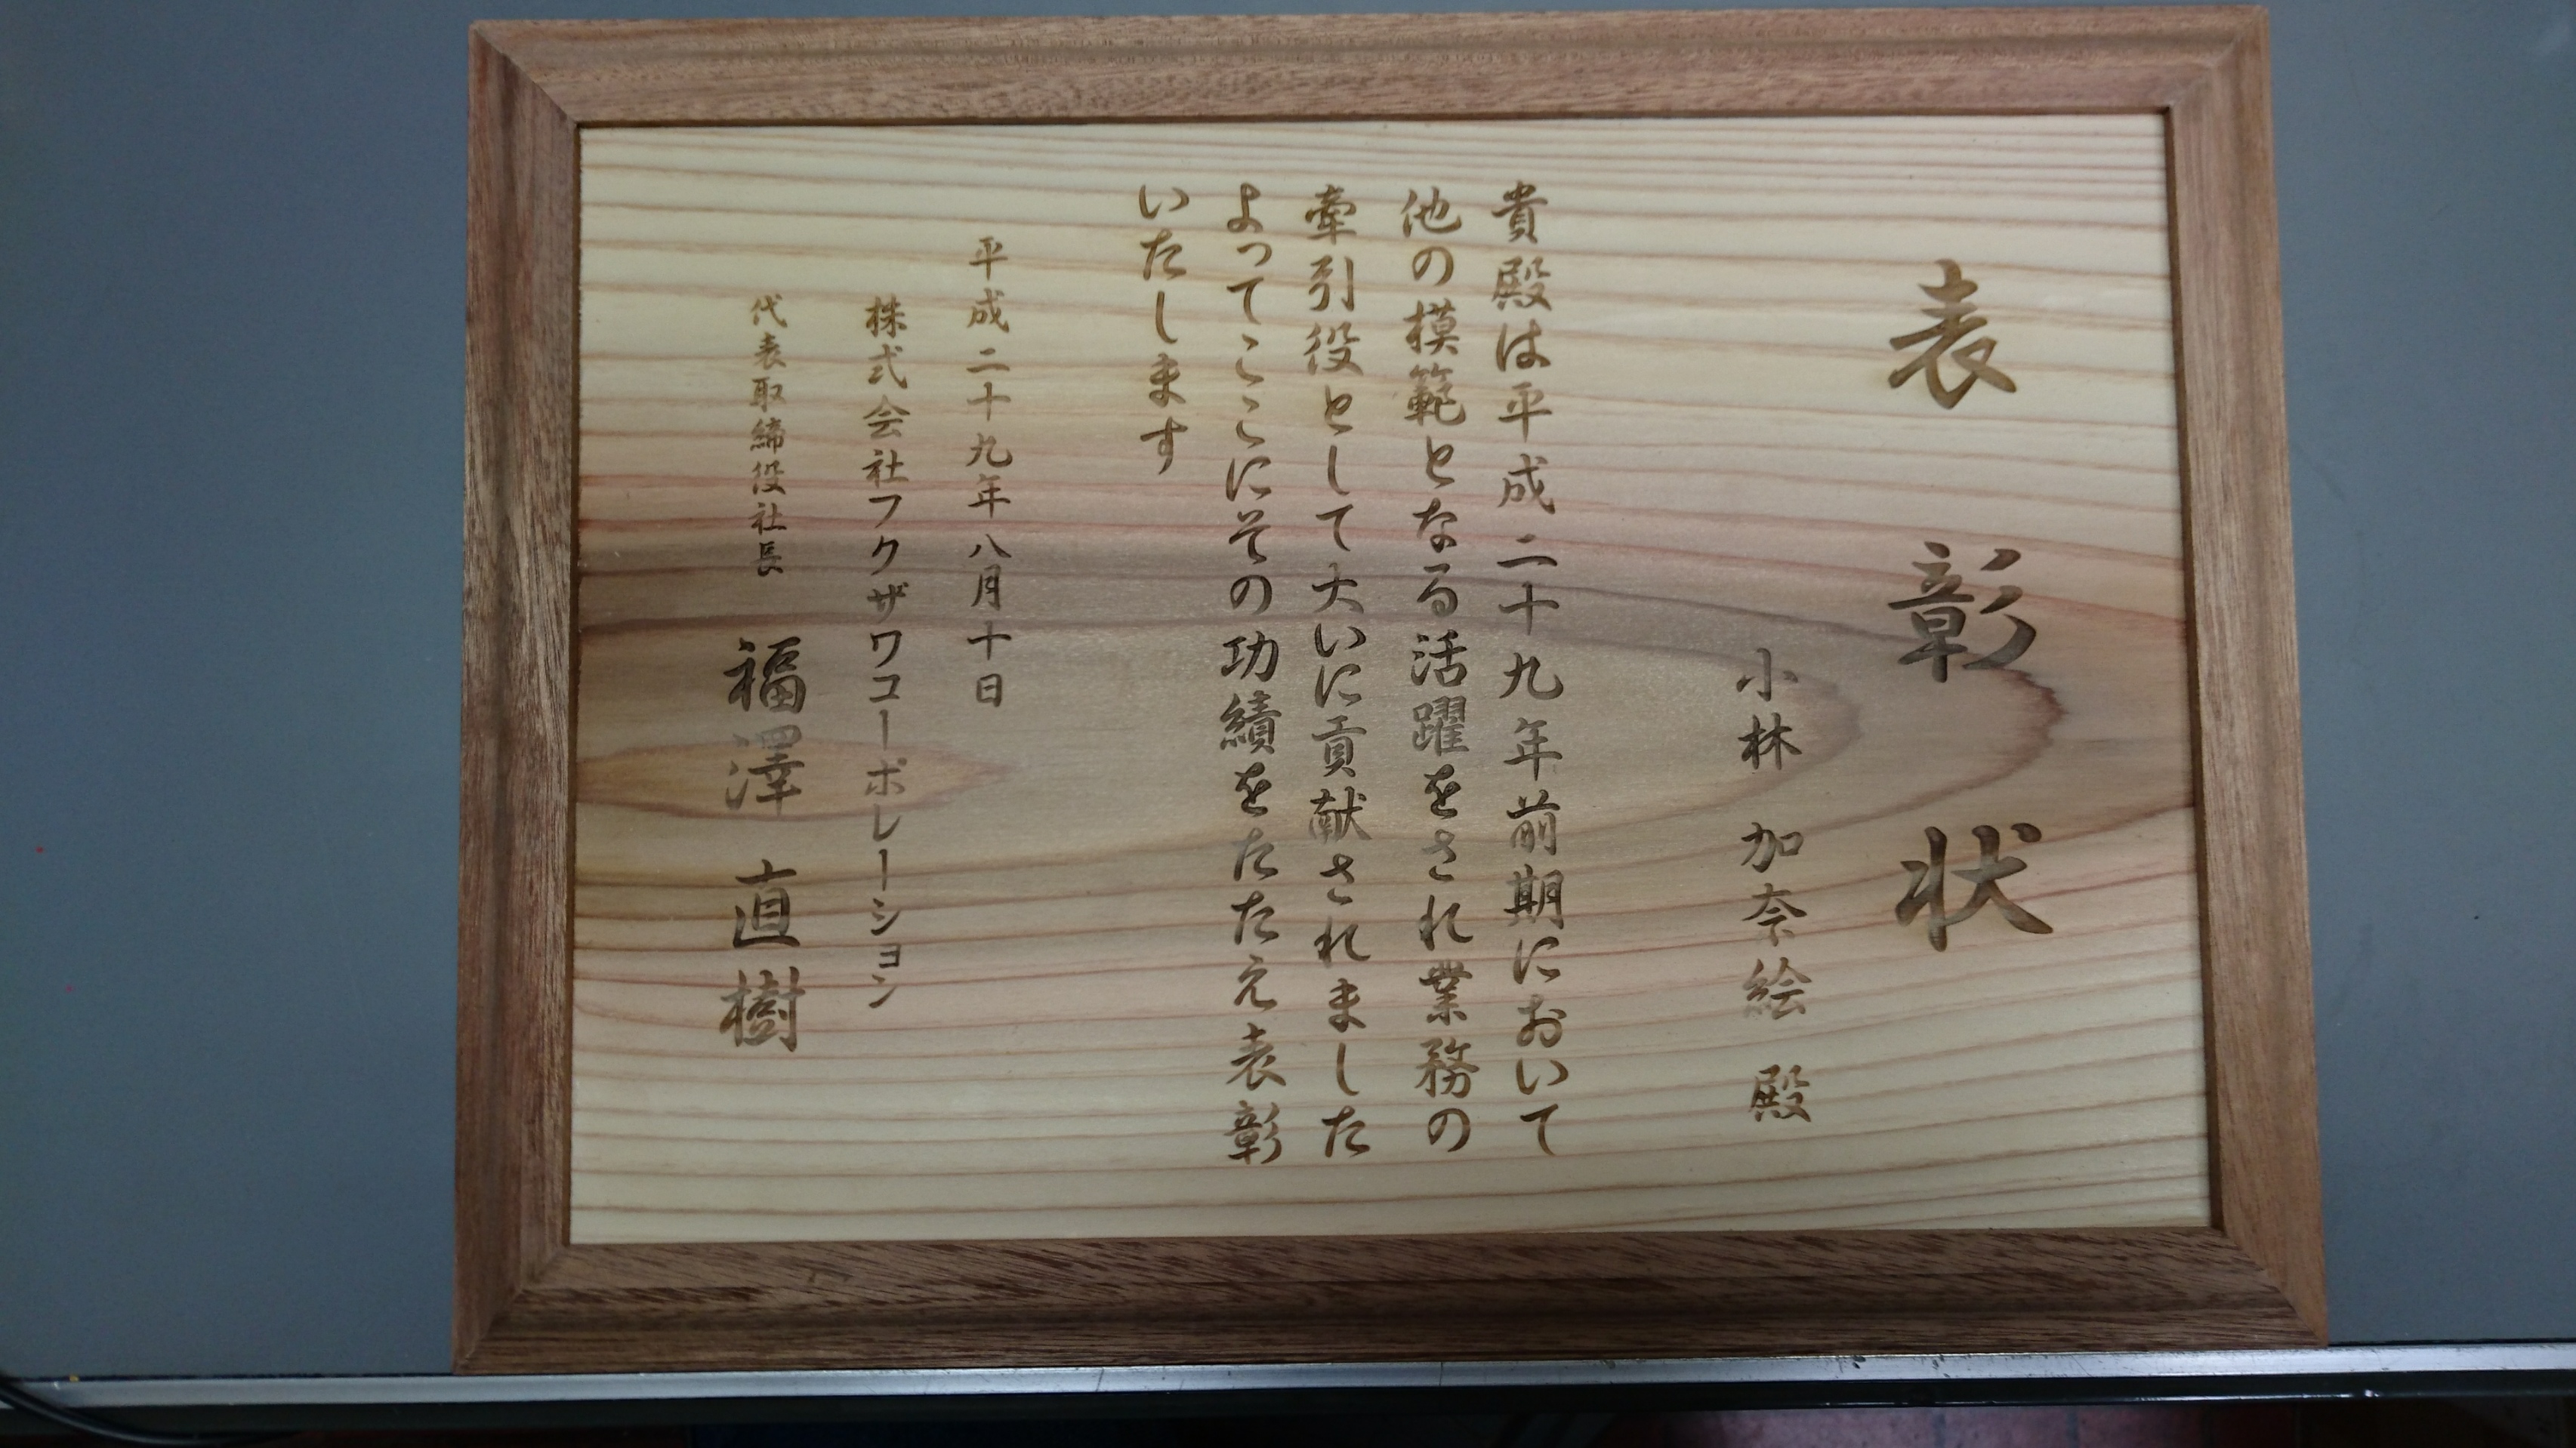 表彰状
小林 加奈絵 殿
貴殿は平成二十九年前期において
他の模範となる活躍をされ業務の
牽引役として大いに貢献されました
よってここにその功績をたたえ表彰
いたします
平成二十九年八月十日
株式会社フクザワコーポレーション
代表取締役社長 福澤 直樹